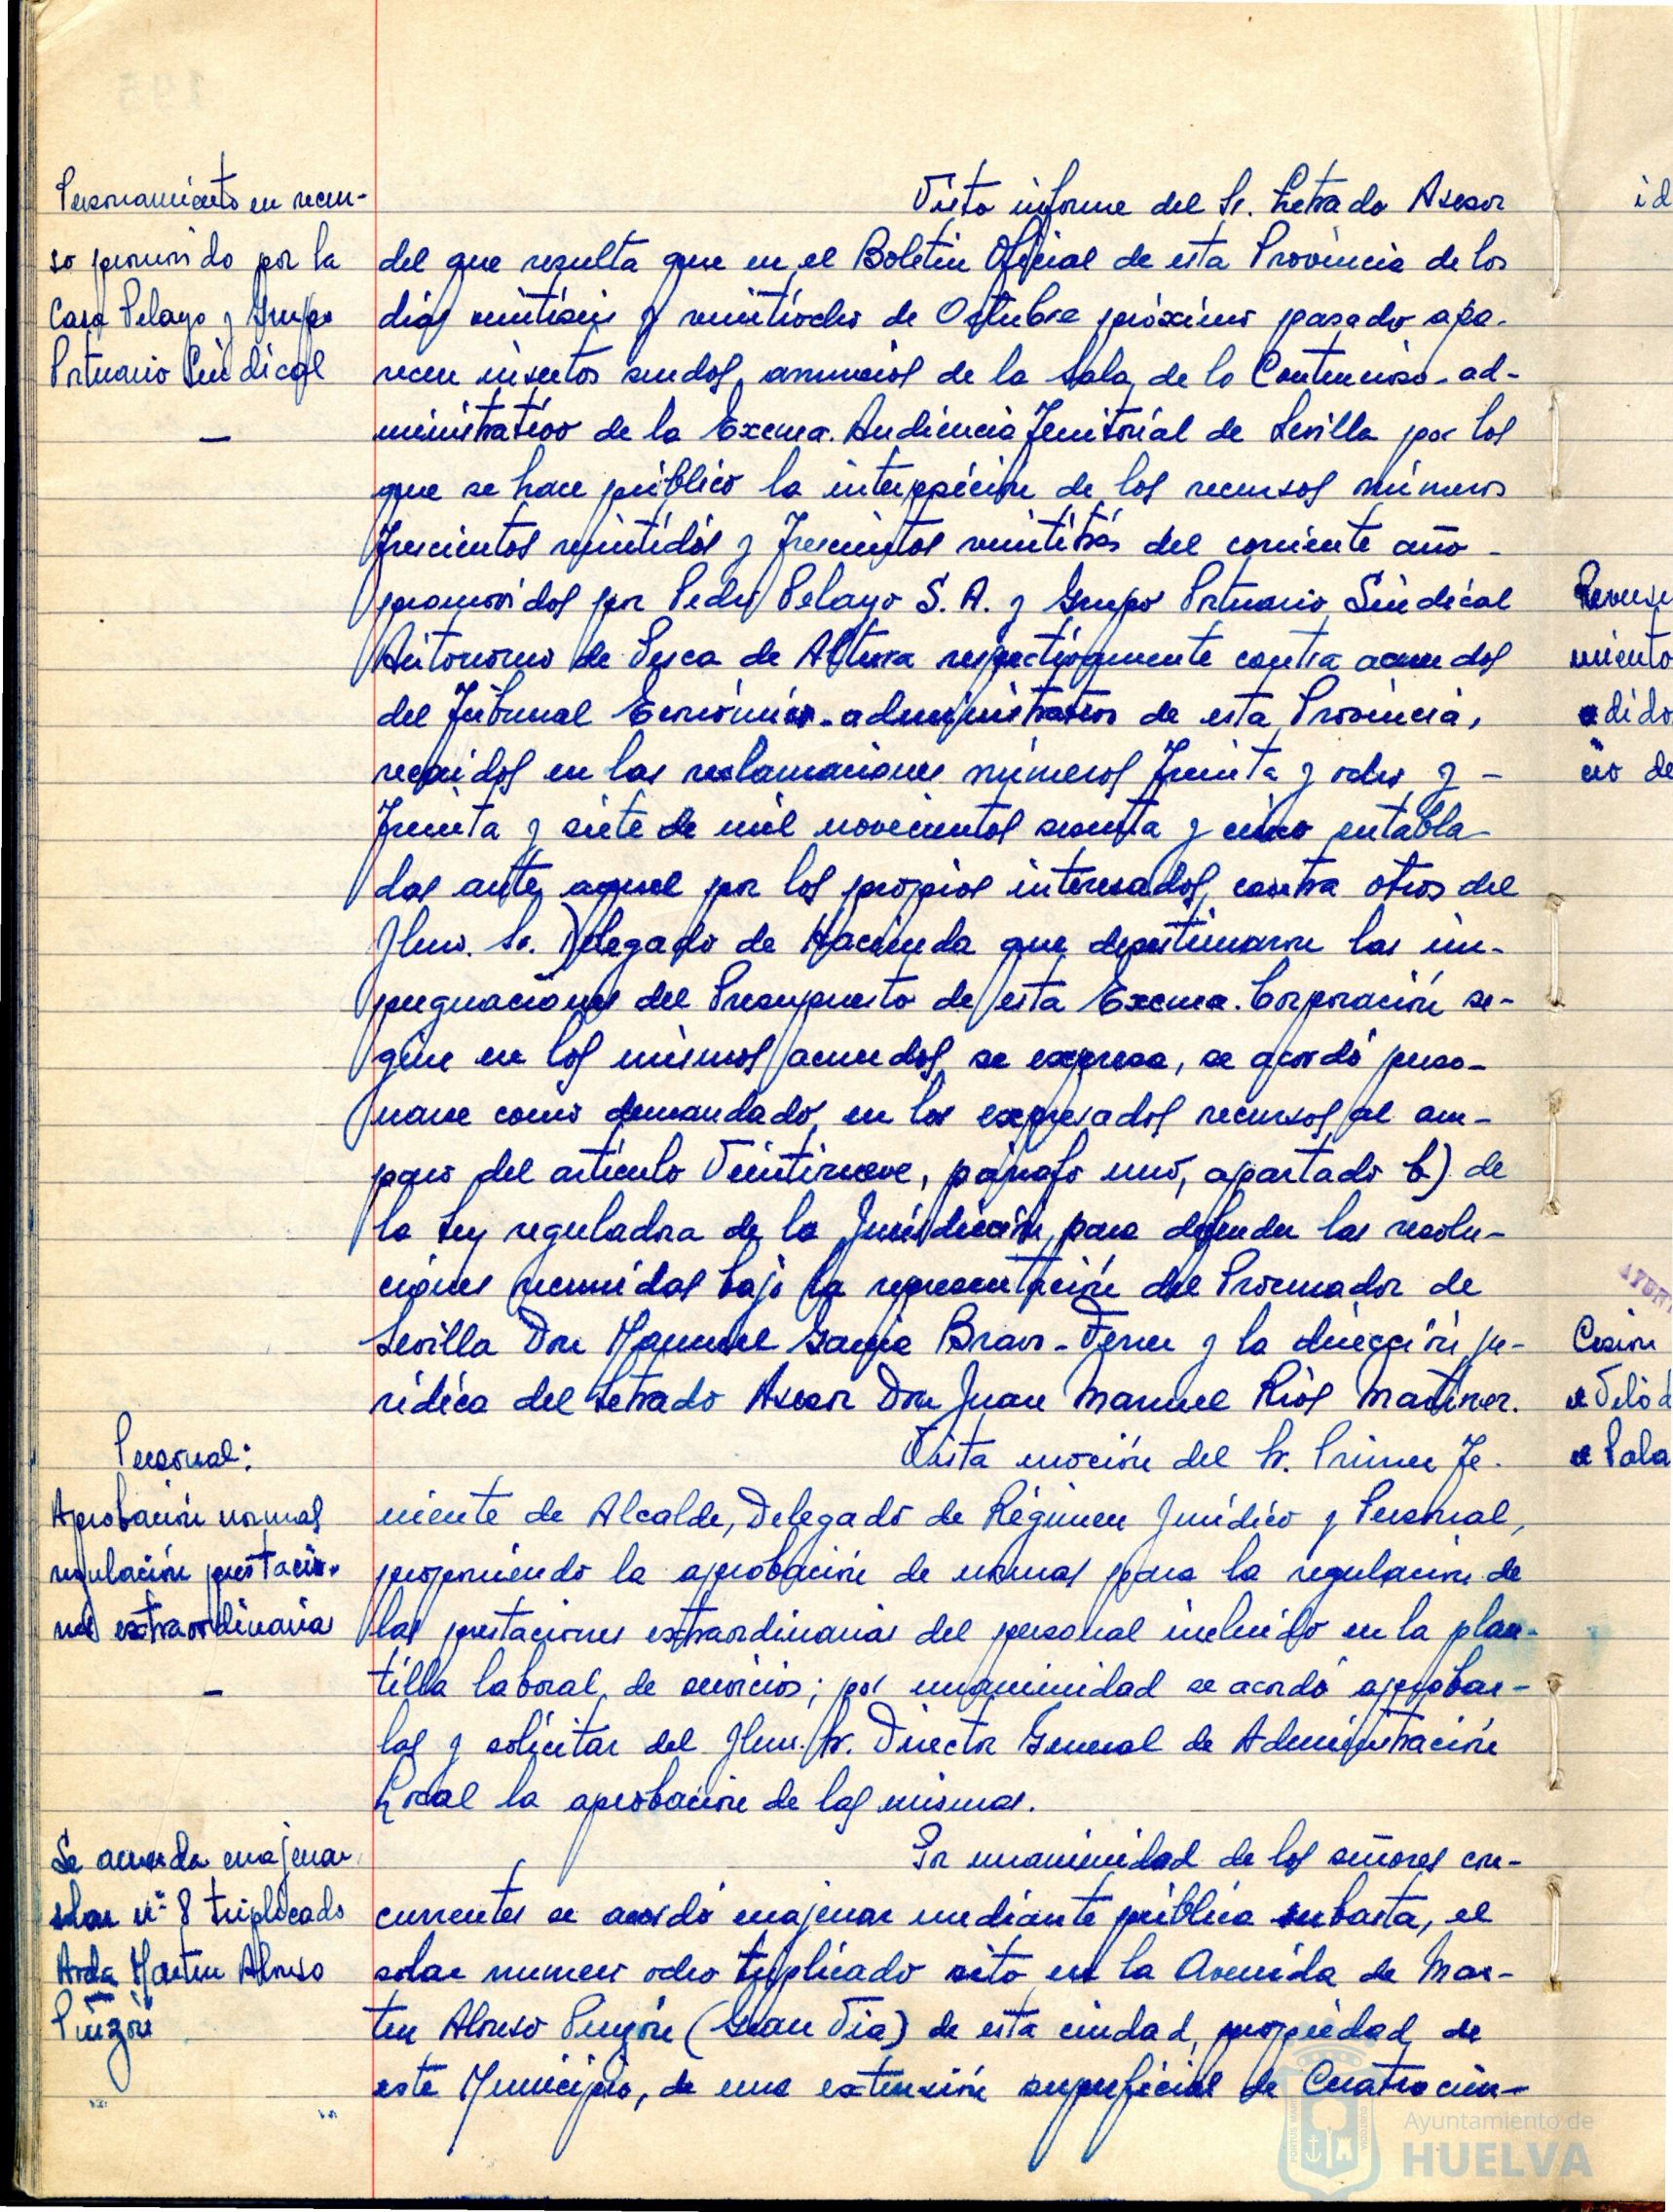 Personamiento en recur-
so promovido por la
Casa Pelayo y Grupo
Portuario Sindical
—
Visto informe del Sr. Letrado Asesor
del que resulta que en el Boletin Oficial de esta Provincia de los
dias veintiseis y veintiocho de Octubre próximo pasado apa-
recen insertos sendos anuncios de la Sala de lo Contencioso-ad-
ministrativo de la Excma. Audiencia Territorial de Sevilla por los
que se hace público la interposición de los recursos números
trescientos veintidós y trescientos veintitrés del corriente año -
promovidos por Pedro Pelayo S. A. y Grupo Portuario Sindical
Autonomo de Pesca de Altura respectivamente contra acuerdos
del Tribunal Económico-administrativo de esta Provincia,
recaidos en las reclamaciones números treinta y ocho y -
treinta y siete de mil novecientos sesenta y cinco entabla-
das ante aquel por los propios interesados, contra otros del
Ilmo. Sr. Delegado de Hacienda que desestimaron las im-
pugnaciones del Presupuesto de esta Excma. Corporación se-
gún en los mismos acuerdos se expresa, se acordó perso-
narse como demandado en los expresados recursos al am-
paro del artículo Veintinueve, párrafo uno, apartado b) de
la Ley reguladora de la Jurisdicción, para defender las resolu-
ciones recurridas bajo la representación del Procurador de
Sevilla Don Manuel García Bravo-Ferrer y la dirección ju-
rídica del Letrado Asesor Don Juan Manuel Ríos Martinez.
Personal:
Aprobación normas
regulación prestacio-
nes extraordinarias
—
Vista moción del Sr. Primer Te-
niente de Alcalde, Delegado de Régimen Jurídico y Personal,
proponiendo la aprobación de normas para la regulación de
las prestaciones extraordinarias del personal incluido en la plan-
tilla laboral de servicios; por unanimidad se acordó aprobar-
las y solicitar del Ilmo. Sr. Director General de Administración
Local la aprobación de las mismas.
Se acuerda enajenar
solar nº 8 triplicado
Avda Martin Alonso
Pinzón
Por unanimidad de los señores con-
currentes se acordó enajenar mediante pública subasta, el
solar numero ocho triplicado sito en la Avenida de Mar-
tin Alonso Pinzón (Gran Via) de esta ciudad, propiedad de
este Municipio, de una extensión superficial de Cuatrocien-
id
miento
dido
cio de
Cesión
Pala
Ayuntamiento de
HUELVA